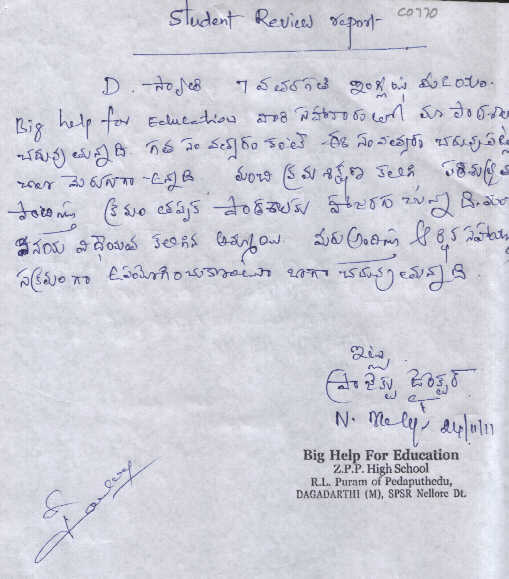 Student Review report
C0770
D. స్వాతి 7 వ తరగతి ఇంగ్లీషు మీడియం.
Big help for Education వారి సహకారంతో మా పాఠశాల
చదువుతున్నాది. గత సంవత్సరం కంటే ఈ సంవత్సరం చదువు
చాలా మెరుగుగా ఉన్నాది. మంచి క్రమశిక్షణ కలిగి
క్రమం తప్పక పాఠశాలకు హాజరగుచున్నాది.
వినయ విధేయత కలిగిన అమ్మాయి. మీరు అందిస్తున్న ఆర్థిక
సక్రమంగా ఉపయోగించుకుంటూ బాగా చదువుతున్నాది.
ఇట్లు
ప్రాజెక్టు డైరెక్టర్
24/11/11
Big Help For Education
Z.P.P. High School
R.L. Puram of Pedaputhedu,
DAGADARTHI (M), SPSR Nellore Dt.